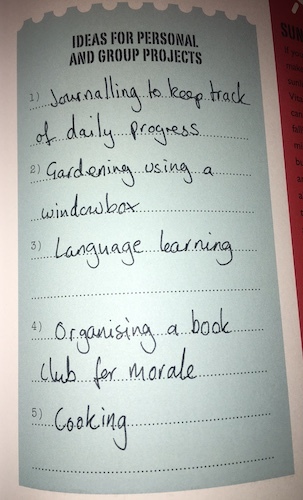 IDEAS FOR PERSONAL
AND GROUP PROJECTS
1) Journalling to keep track
of daily progress
2) Gardening using a
windowbox
3) Language learning
4) Organising a book
club for morale
5) Cooking